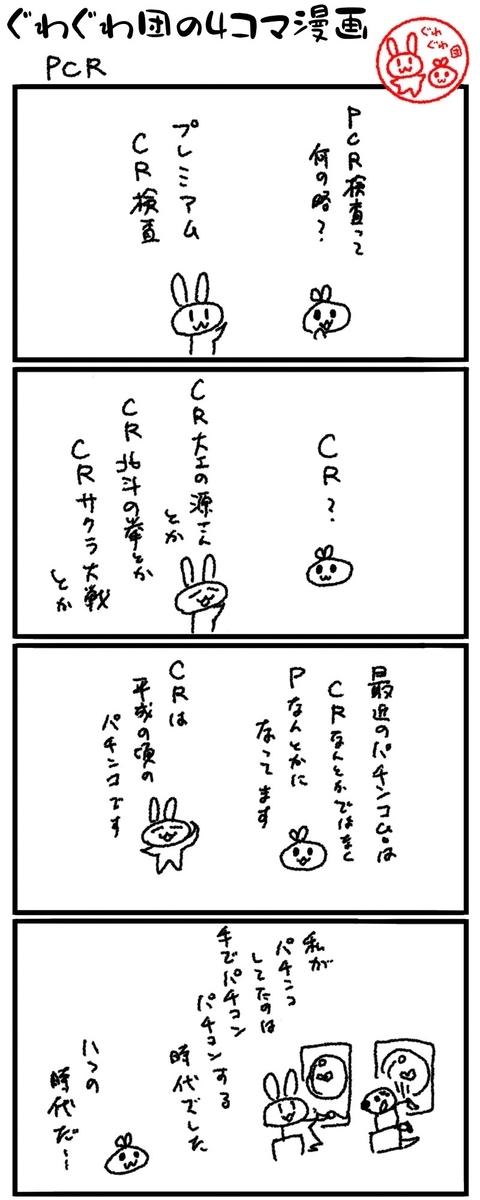 ぐわぐわ団の4コマ漫画
ぐわ
ぐわ
団
PCR
PCR検査って
何の略?
プレミアム
CR検査
CR?
CR大工の源さん
とか
CR北斗の拳とか
CRサクラ大戦
とか
最近のパチンコ台は
CRなんとかではなく
Pなんとかに
なってます
CRは
平成の頃の
パチンコです
私が
パチンコ
してたのは
手でパチコン
パチコンする
時代でした
いつの
時代だ〜